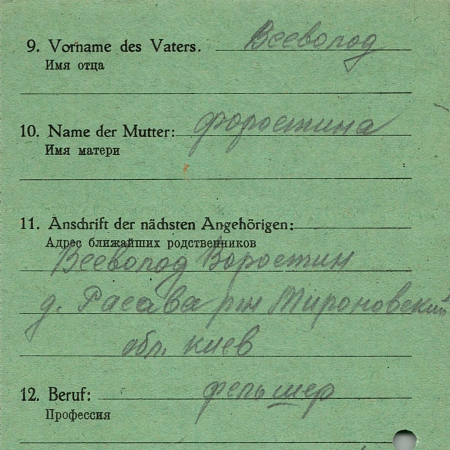 9. Vorname des Vaters. Всеволод
Имя отца
10. Name der Mutter: форостина
Имя матери
11. Anschrift der nächsten Angehörigen:
Адрес ближайших родственников
Всеволод Воростин
д. Расава рн Мироновский
обл. киев
12. Beruf: фельшер
Профессия